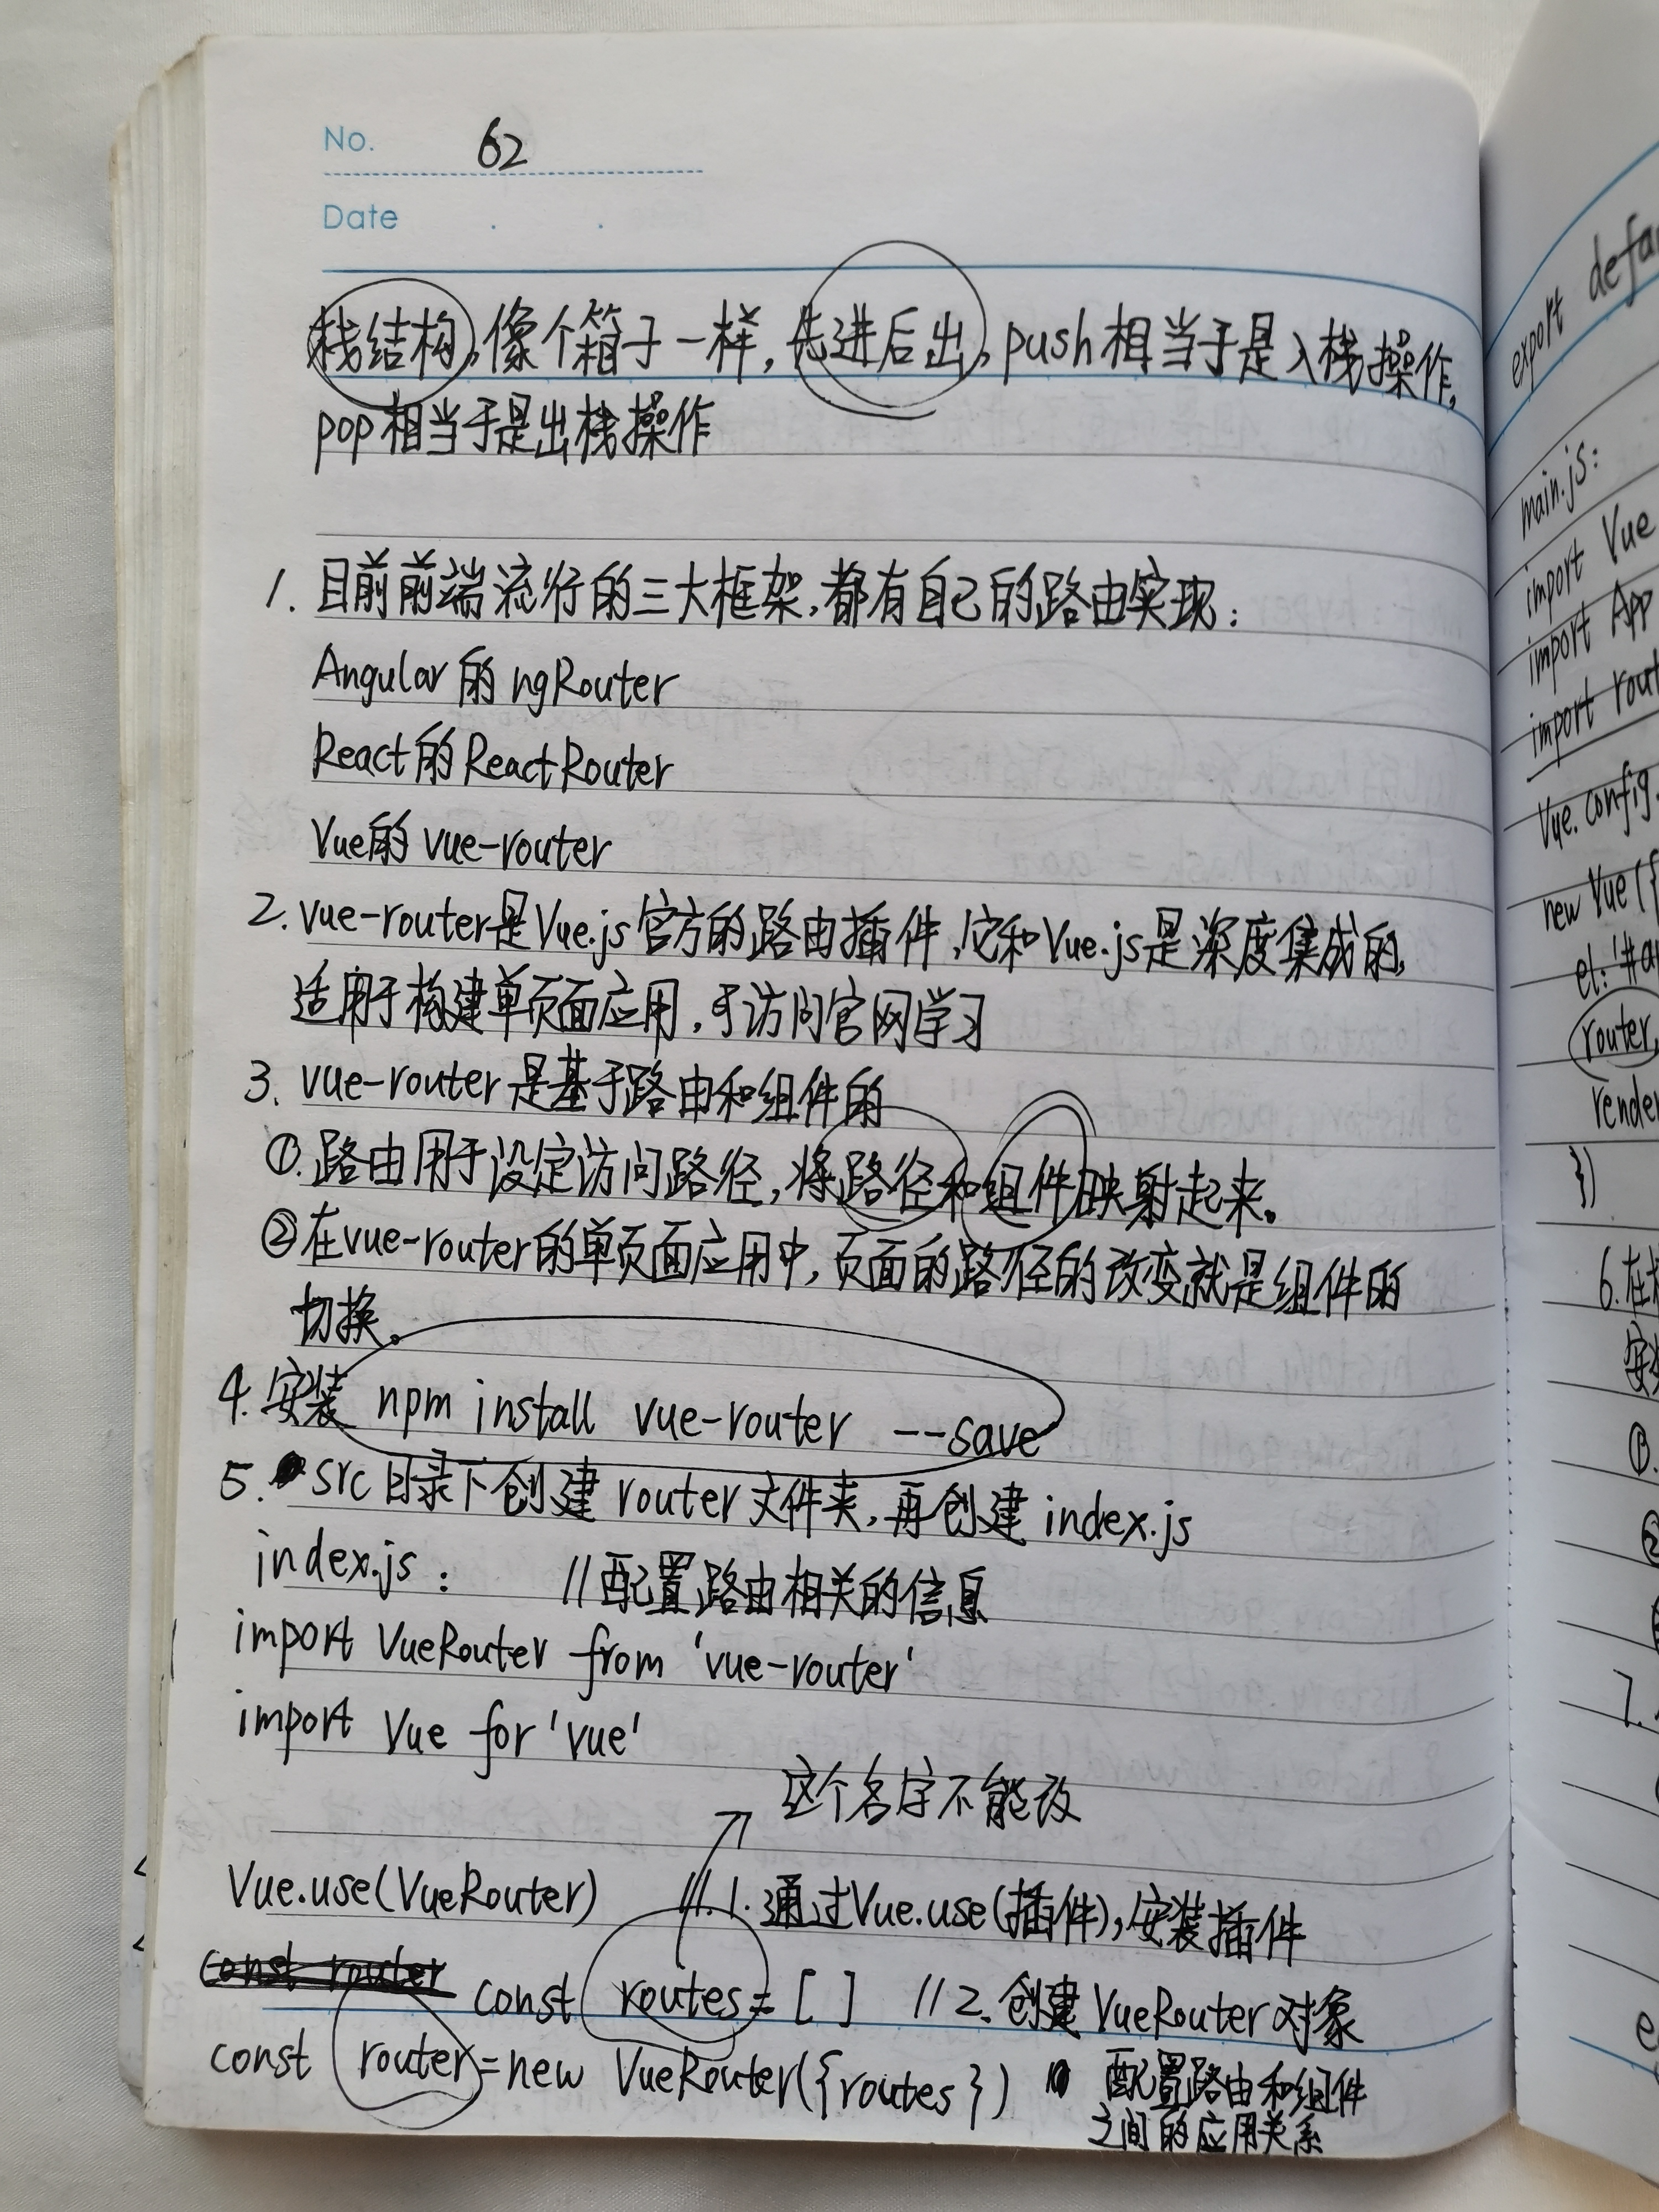 No. 62
Date . .
栈结构,像个箱子一样,先进后出,push相当于是入栈操作,
pop相当于是出栈操作
1. 目前前端流行的三大框架,都有自己的路由实现:
Angular的 ngRouter
React的ReactRouter
Vue的 vue-router
2. vue-router是Vue.js官方的路由插件,它和Vue.js是深度集成的,
适用于构建单页面应用,可访问官网学习
3. vue-router是基于路由和组件的
①.路由用于设定访问路径,将路径和组件映射起来。
②在vue-router的单页面应用中,页面的路径的改变就是组件的
切换。
4.安装 npm install vue-router --save
5. src目录下创建router文件夹,再创建 index.js
index.js: //配置路由相关的信息
import VueRouter from 'vue-router'
import Vue for 'vue'
这个名字不能改
Vue.use(VueRouter) //1.通过Vue.use(插件),安装插件
const router const routes = [ ] //2.创建VueRouter对象
const router=new VueRouter({routes}) 配置路由和组件
之间的应用关系
export defa
main.js:
import Vue
import App
import rout
Vue.config.
new Vue({
el:'#a
router,
rende
})
6.在
安
①.
②
7.